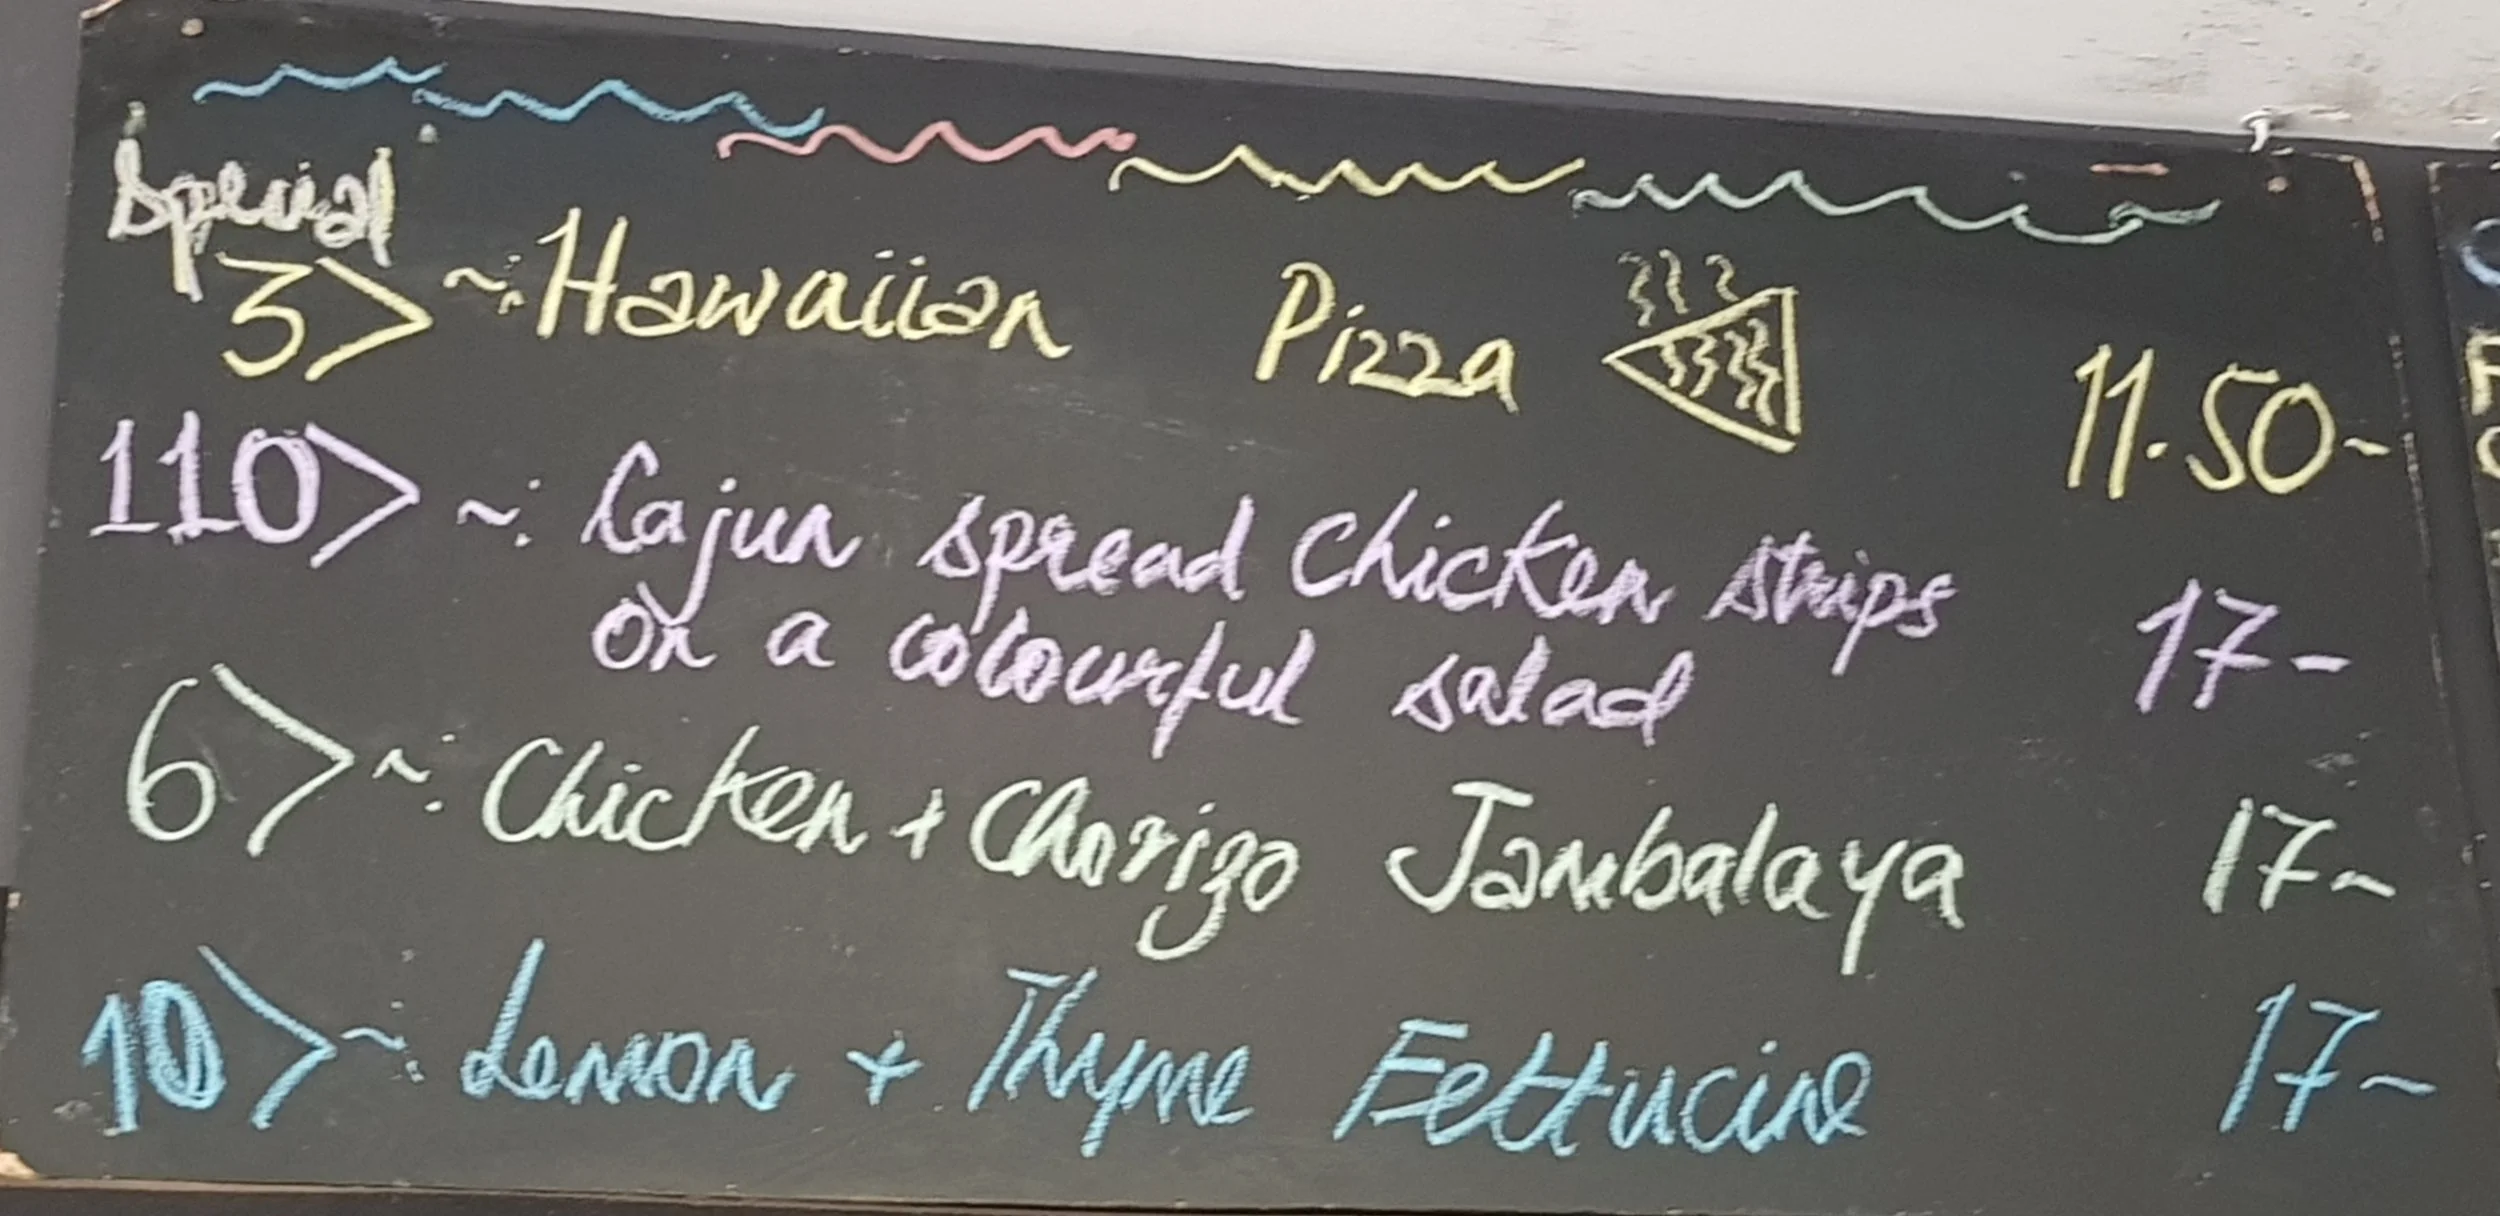 Special
3> ~: Hawaiian Pizza 11.50~
110> ~: Cajun spread Chicken strips
on a colourful salad 17-
6> ~: Chicken + Chorizo Jambalaya 17~
10> ~: Lemon + Thyme Fettucine 17~